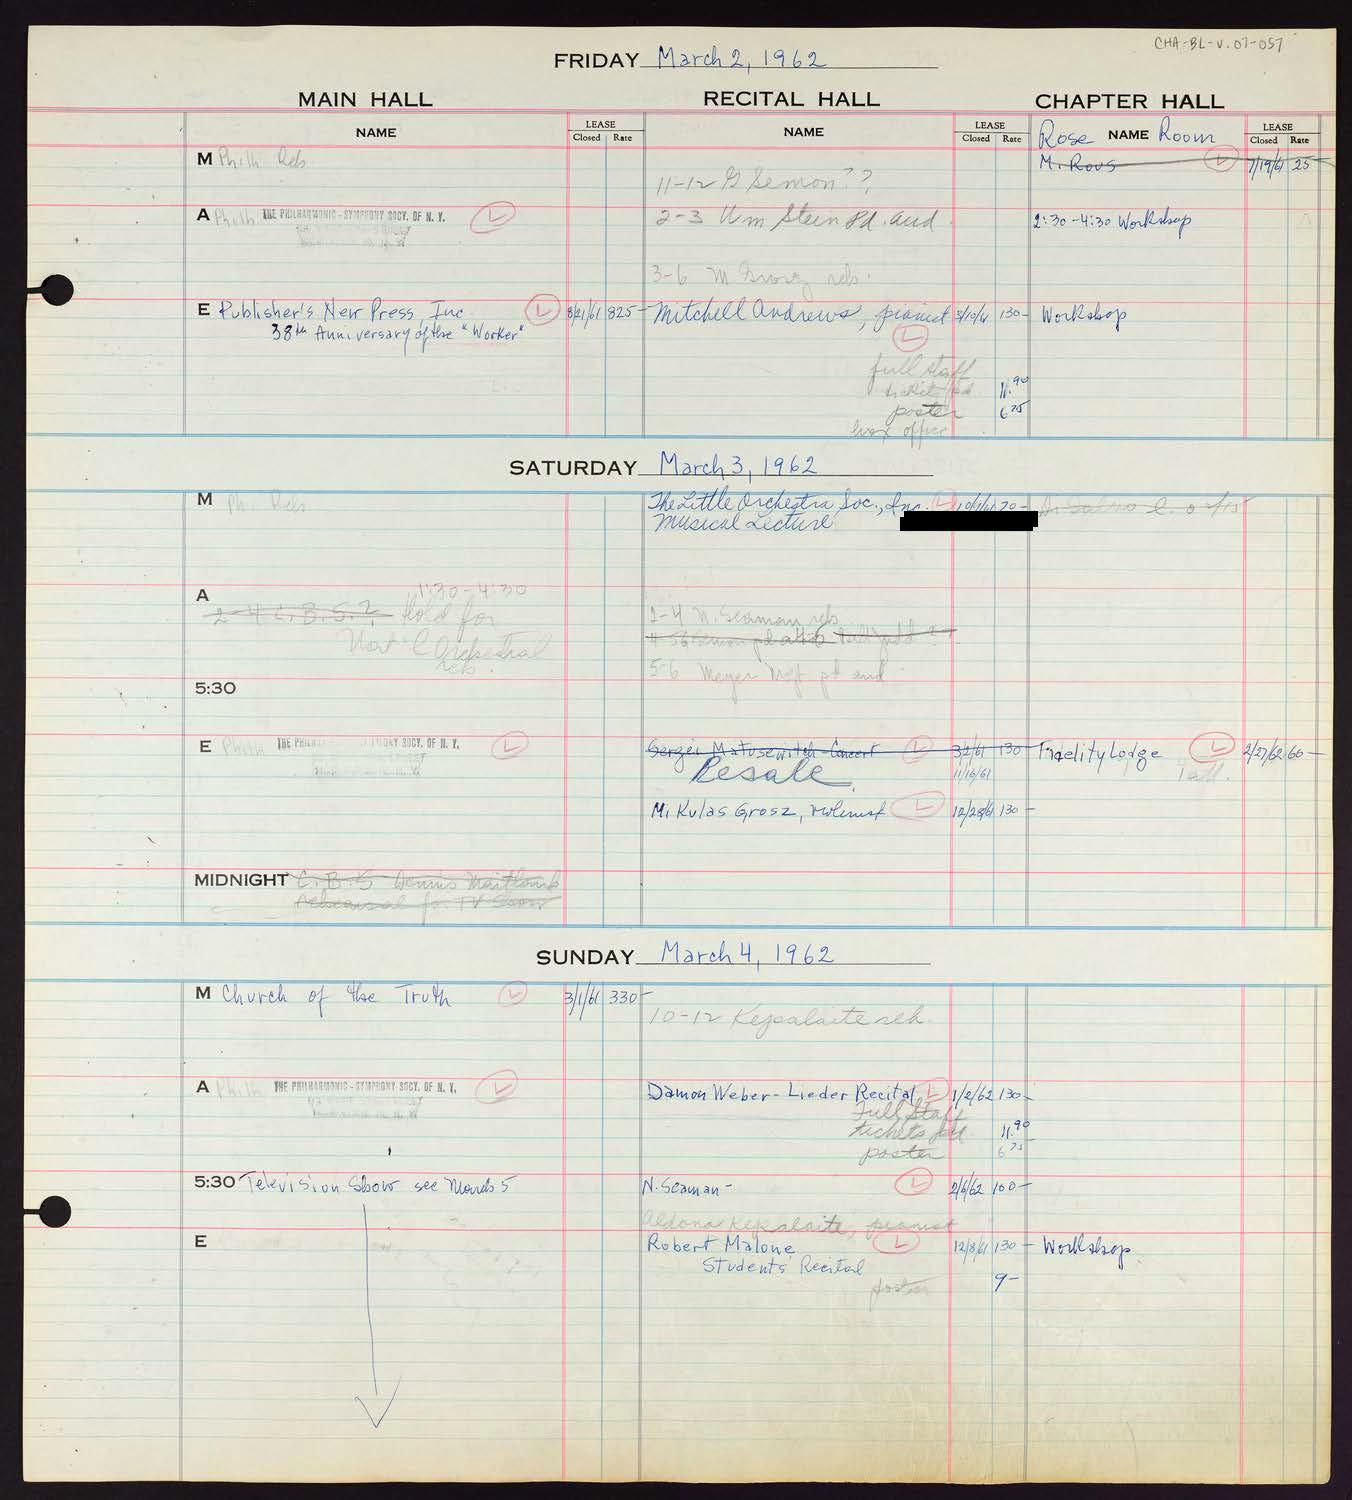 CHA-BL-V.07-057
FRIDAY March 2, 1962
MAIN HALL RECITAL HALL CHAPTER HALL
NAME LEASE Closed Rate NAME LEASE Closed Rate Rose NAME Room LEASE Closed Rate
M Philh Reh. M. Rous 7/19/61 25-
11-12 G Semon??
A Philh THE PHILHARMONIC-SYMPHONY SOCY. OF N. Y. L 2-3 Wm Stein Pd. aud 2:30-4:30 Workshop
3-6 M Grosz reh.
E Publisher's New Press, Inc. L 8/21/61 825- Mitchell Andrews, pianist 130- Workshop
38th Anniversary of the "Worker" L
full staff
tickets pd 11.90
poster 6 75
box office
SATURDAY March 3, 1962
M Phi Reh. The Little Orchestra Soc., Inc. L 70-
Musical Lecture
A 1:30-4:30
2-4 C.B.S.? Hold for 2-4 N. Seaman reh
Nat'l Orchestral
reh. 5-6 Meyer pd aud
5:30
E Philh THE PHILHARMONIC-SYMPHONY SOCY. OF N. Y. L Sergei Matusewitch-Concert L 3/2/61 130- Fidelity Lodge L 2/27/62 60-
Resale 11/16/61
Mikulas Grosz, violinist L 12/28/61 130-
MIDNIGHT C.B.S Dennis
rehearsal for TV Show
SUNDAY March 4, 1962
M Church of the Truth L 3/1/61 330-
10-12 Kepalaite reh.
A Philh THE PHILHARMONIC-SYMPHONY SOCY. OF N. Y. L Damon Weber-Lieder Recital L 1/2/62 130-
Full Staff
tickets pd 11.90
poster 6 75
5:30 Television Show see March 5 N. Seaman- L 2/6/62 100-
Aldona Kepalaite, pianist
E Robert Malone L 12/8/61 130- Workshop
Students' Recital
poster 9-